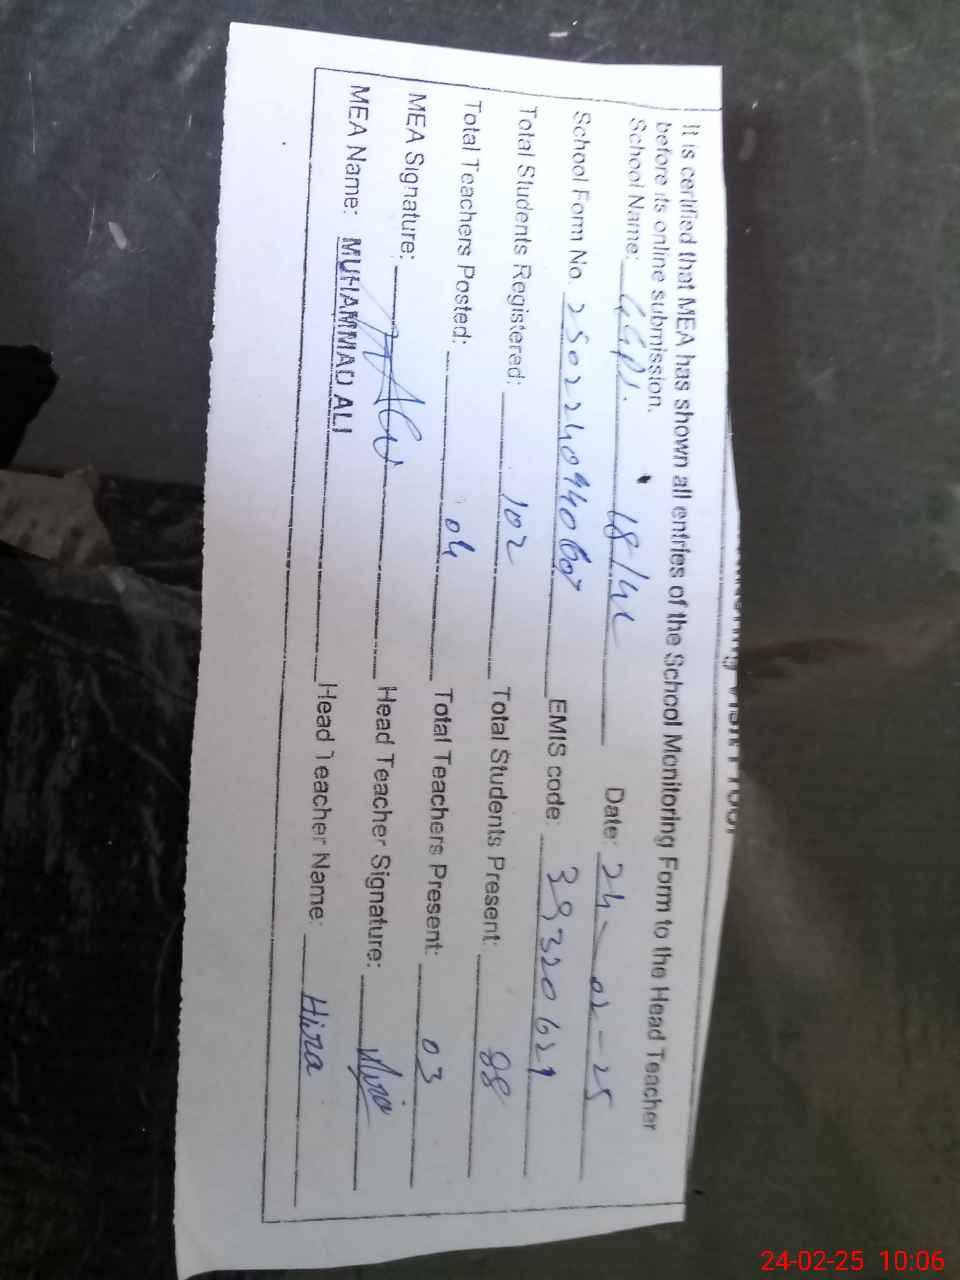 It is certified that MEA has shown all entries of the School Monitoring Form to the Head Teacher
before its online submission.
School Name: GGPS. 18/4L Date: 24-02-25
School Form No. EMIS code:
Total Students Registered: 102 Total Students Present: 88
Total Teachers Posted: 04 Total Teachers Present: 03
MEA Signature: Head Teacher Signature: Hira
MEA Name: MUHAMMAD ALI Head Teacher Name: Hira
24-02-25 10:06